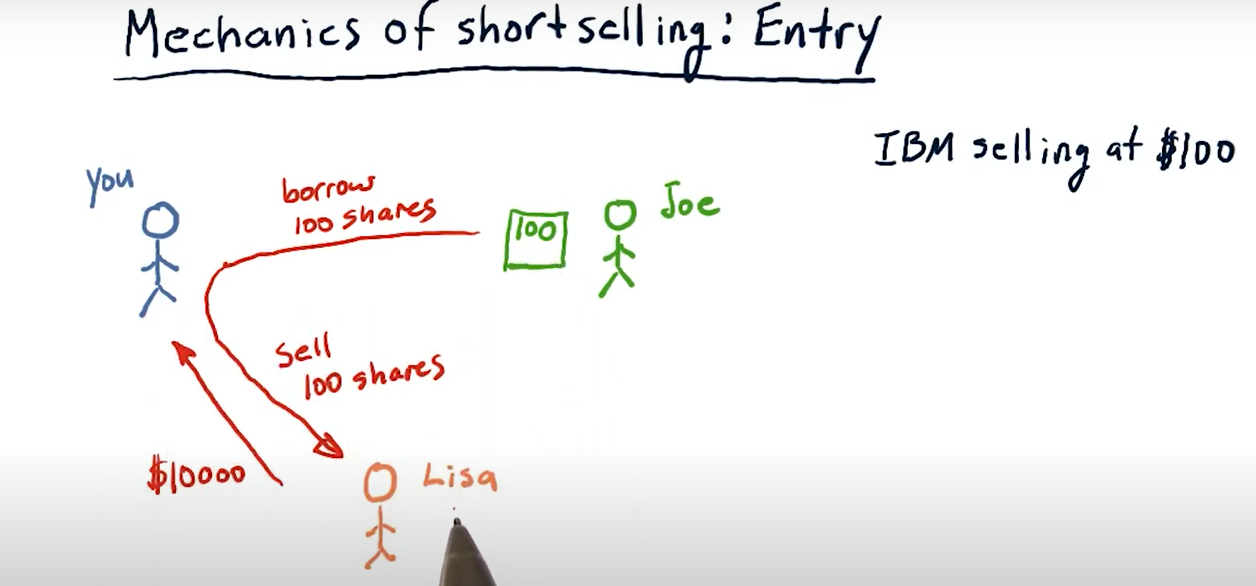 Mechanics of short selling: Entry
IBM selling at $100
you
borrows
100 shares
100
Joe
Sell
100 shares
$10000
Lisa